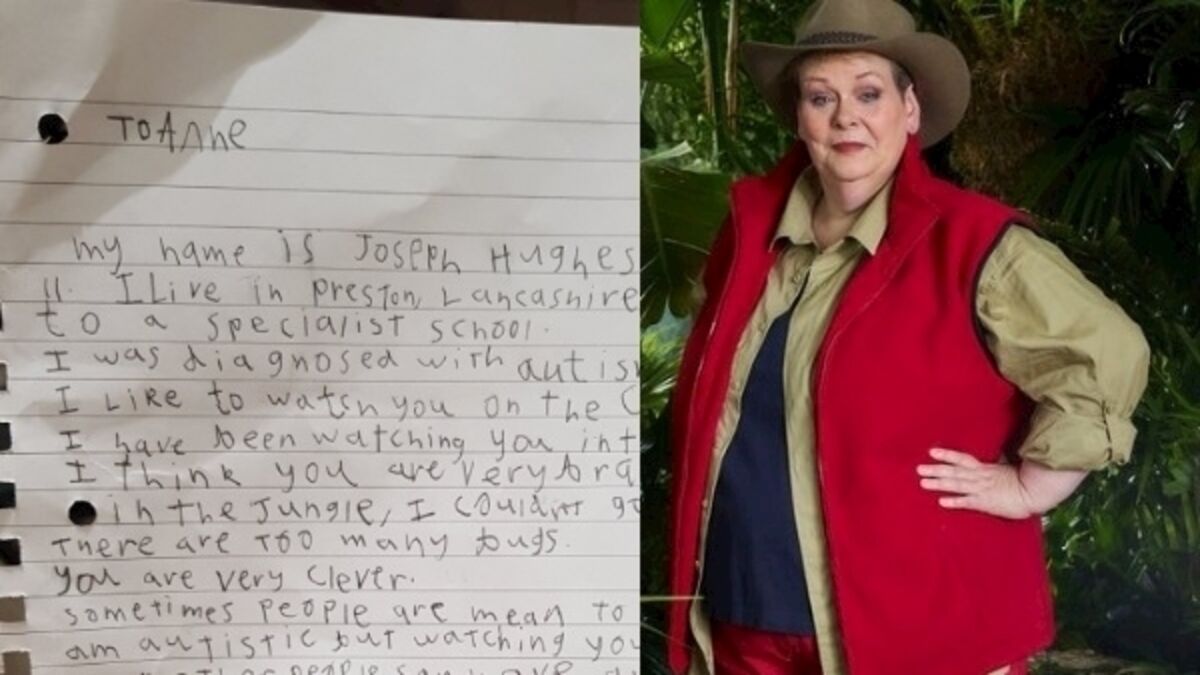 TO Anne
my name is Joseph Hughes
11. I Live in Preston, Lancashire
to a specialist school.
I was diagnosed with autis
I Like to watch you on the C
I have been watching you in t
I think you are very bra
in the Jungle, I couldnt go
There are TOO many bugs.
you are very clever.
sometimes people are mean to
am autistic but watching you
people say